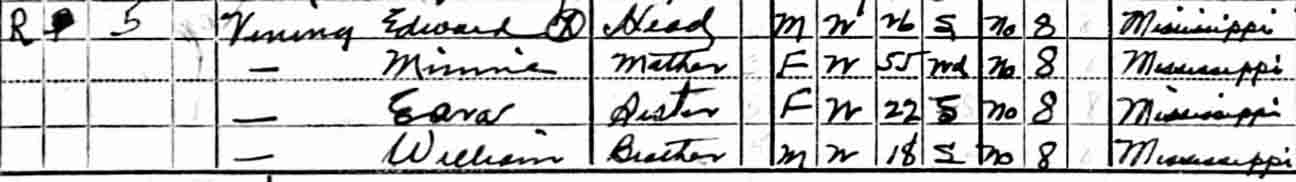 R 5 Vining Edward Ⓧ Head M W 26 S No 8 Mississippi
— Minnie Mother F W 55 Wd No 8 Mississippi
— Sister F W 22 S No 8 Mississippi
— William Brother M W 18 S No 8 Mississippi